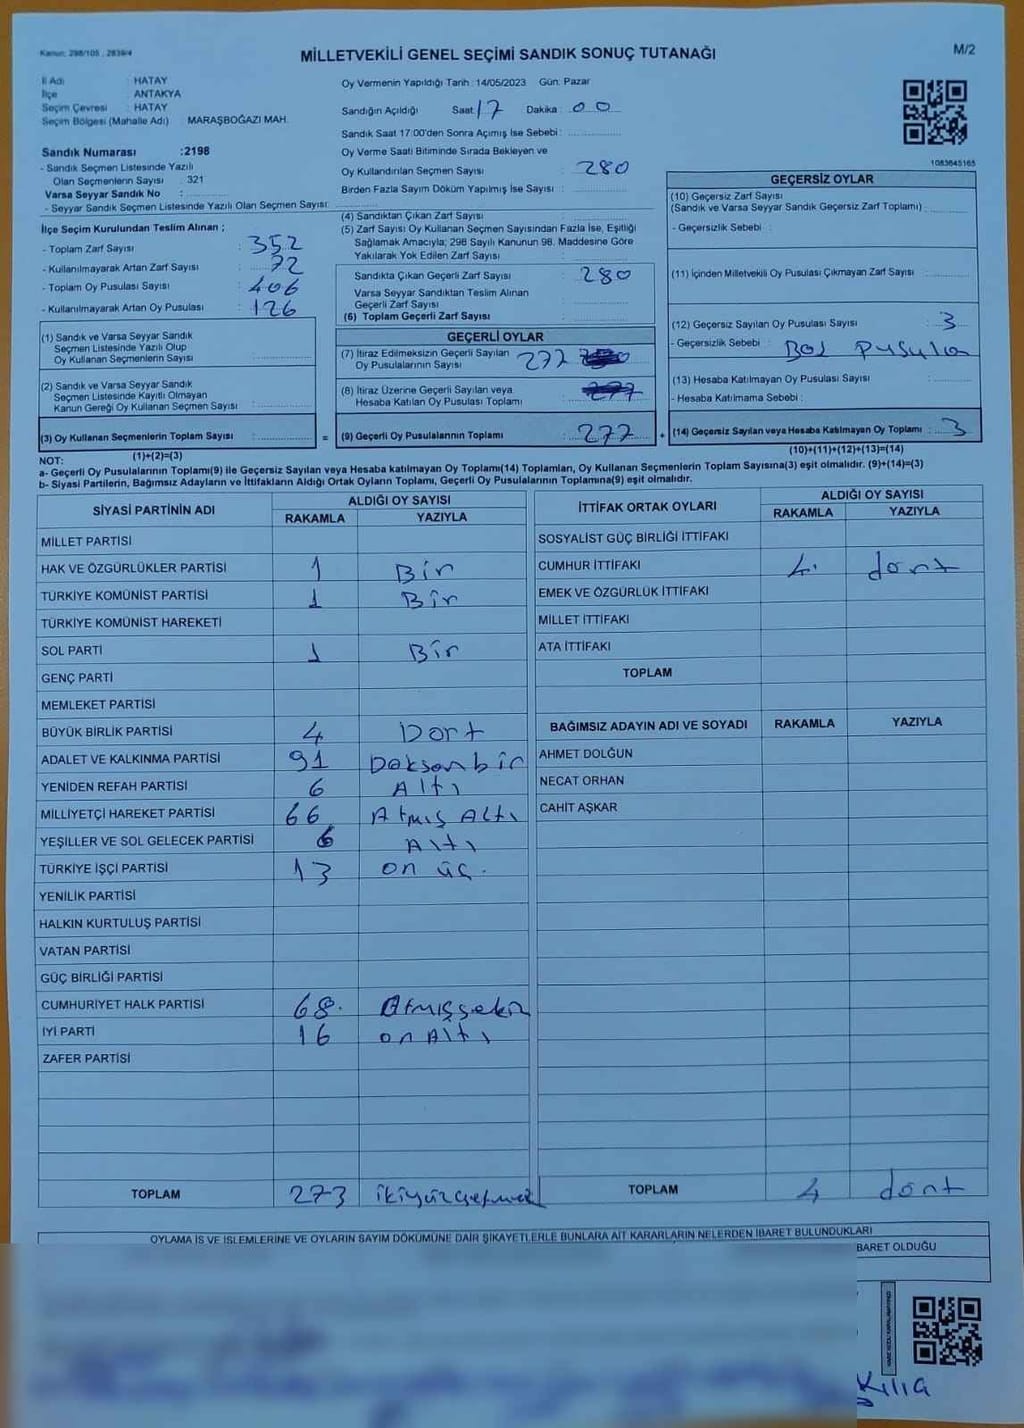 Kanun: 298/105 , 2839/4
MİLLETVEKİLİ GENEL SEÇİMİ SANDIK SONUÇ TUTANAĞI
M/2
İl Adı : HATAY
İlçe : ANTAKYA
Seçim Çevresi : HATAY
Seçim Bölgesi (Mahalle Adı) : MARAŞBOĞAZI MAH.
Oy Vermenin Yapıldığı Tarih : 14/05/2023 Gün: Pazar
Sandığın Açıldığı Saat: 17 Dakika : 00
Sandık Saat 17:00'den Sonra Açımış İse Sebebi :
Oy Verme Saati Bitiminde Sırada Bekleyen ve
Oy Kullandırılan Seçmen Sayısı : 280
Birden Fazla Sayım Döküm Yapılmış İse Sayısı :
1083645165
Sandık Numarası :2198
- Sandık Seçmen Listesinde Yazılı
Olan Seçmenlerin Sayısı : 321
Varsa Seyyar Sandık No :
- Seyyar Sandık Seçmen Listesinde Yazılı Olan Seçmen Sayısı:
İlçe Seçim Kurulundan Teslim Alınan ;
- Toplam Zarf Sayısı : 352
- Kullanılmayarak Artan Zarf Sayısı : 72
- Toplam Oy Pusulası Sayısı : 406
- Kullanılmayarak Artan Oy Pusulası : 126
(1) Sandık ve Varsa Seyyar Sandık
Seçmen Listesinde Yazılı Olup
Oy Kullanan Seçmenlerin Sayısı :
(2) Sandık ve Varsa Seyyar Sandık
Seçmen Listesinde Kayıtlı Olmayan
Kanun Gereği Oy Kullanan Seçmen Sayısı :
(3) Oy Kullanan Seçmenlerin Toplam Sayısı :
(1)+(2)=(3)
(4) Sandıktan Çıkan Zarf Sayısı :
(5) Zarf Sayısı Oy Kullanan Seçmen Sayısından Fazla İse, Eşitliği
Sağlamak Amacıyla; 298 Sayılı Kanunun 98. Maddesine Göre
Yakılarak Yok Edilen Zarf Sayısı :
Sandıkta Çıkan Geçerli Zarf Sayısı : 280
Varsa Seyyar Sandıktan Teslim Alınan
Geçerli Zarf Sayısı :
(6) Toplam Geçerli Zarf Sayısı :
GEÇERLİ OYLAR
(7) İtiraz Edilmeksizin Geçerli Sayılan
Oy Pusulalarının Sayısı : 277
(8) İtiraz Üzerine Geçerli Sayılan veya
Hesaba Katılan Oy Pusulası Toplamı : 277
= (9) Geçerli Oy Pusulalarının Toplamı : 277 +
GEÇERSİZ OYLAR
(10) Geçersiz Zarf Sayısı
(Sandık ve Varsa Seyyar Sandık Geçersiz Zarf Toplamı) :
- Geçersizlik Sebebi :
(11) İçinden Milletvekili Oy Pusulası Çıkmayan Zarf Sayısı :
(12) Geçersiz Sayılan Oy Pusulası Sayısı : 3
- Geçersizlik Sebebi : Boş pusula
(13) Hesaba Katılmayan Oy Pusulası Sayısı :
- Hesaba Katılmama Sebebi :
(14) Geçersiz Sayılan veya Hesaba Katılmayan Oy Toplamı : 3
(10)+(11)+(12)+(13)=(14)
NOT:
a- Geçerli Oy Pusulalarının Toplamı(9) ile Geçersiz Sayılan veya Hesaba katılmayan Oy Toplamı(14) Toplamları, Oy Kullanan Seçmenlerin Toplam Sayısına(3) eşit olmalıdır. (9)+(14)=(3)
b- Siyasi Partilerin, Bağımsız Adayların ve İttifakların Aldığı Ortak Oyların Toplamı, Geçerli Oy Pusulalarının Toplamına(9) eşit olmalıdır.
SİYASİ PARTİNİN ADI
ALDIĞI OY SAYISI
RAKAMLA YAZIYLA
MİLLET PARTİSİ
HAK VE ÖZGÜRLÜKLER PARTİSİ 1 Bir
TÜRKİYE KOMÜNİST PARTİSİ 1 Bir
TÜRKİYE KOMÜNİST HAREKETİ
SOL PARTİ 1 Bir
GENÇ PARTİ
MEMLEKET PARTİSİ
BÜYÜK BİRLİK PARTİSİ 4 Dort
ADALET VE KALKINMA PARTİSİ 91 Doksan bir
YENİDEN REFAH PARTİSİ 6 Altı
MİLLİYETÇİ HAREKET PARTİSİ 66 Atmış Altı
YEŞİLLER VE SOL GELECEK PARTİSİ 6 Altı
TÜRKİYE İŞÇİ PARTİSİ 13 on üç.
YENİLİK PARTİSİ
HALKIN KURTULUŞ PARTİSİ
VATAN PARTİSİ
GÜÇ BİRLİĞİ PARTİSİ
CUMHURİYET HALK PARTİSİ 68. Atmışsekiz
İYİ PARTİ 16 on Altı
ZAFER PARTİSİ
TOPLAM 273
İTTİFAK ORTAK OYLARI
ALDIĞI OY SAYISI
RAKAMLA YAZIYLA
SOSYALİST GÜÇ BİRLİĞİ İTTİFAKI
CUMHUR İTTİFAKI 4. dört
EMEK VE ÖZGÜRLÜK İTTİFAKI
MİLLET İTTİFAKI
ATA İTTİFAKI
TOPLAM
BAĞIMSIZ ADAYIN ADI VE SOYADI RAKAMLA YAZIYLA
AHMET DOLĞUN
NECAT ORHAN
CAHİT AŞKAR
TOPLAM 4 dört
OYLAMA İŞ VE İŞLEMLERİNE VE OYLARIN SAYIM DÖKÜMÜNE DAİR ŞİKAYETLERLE BUNLARA AİT KARARLARIN NELERDEN İBARET BULUNDUKLARI
BARET OLDUĞU